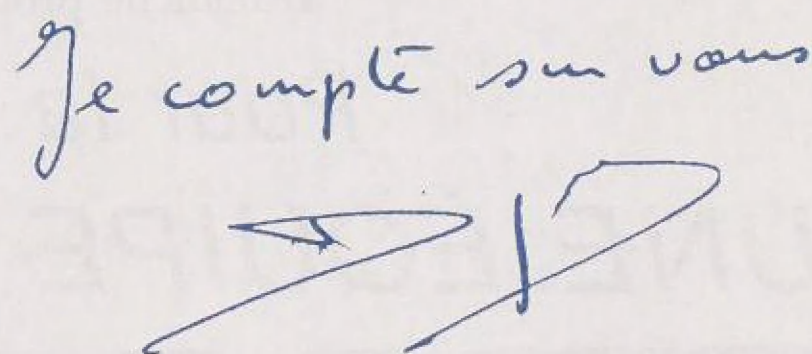 Je compte sur vous